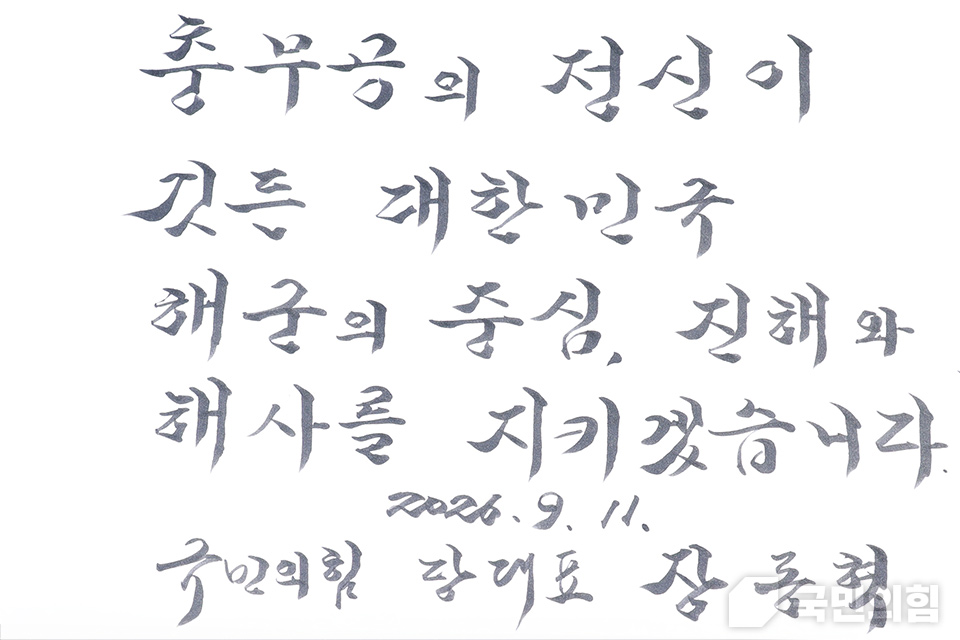 충무공의 정신이
깃든 대한민국
해군의 중심, 진해와
해사를 지키겠습니다.
2026. 9. 11.
국민의힘 당대표 장동혁
국민의힘